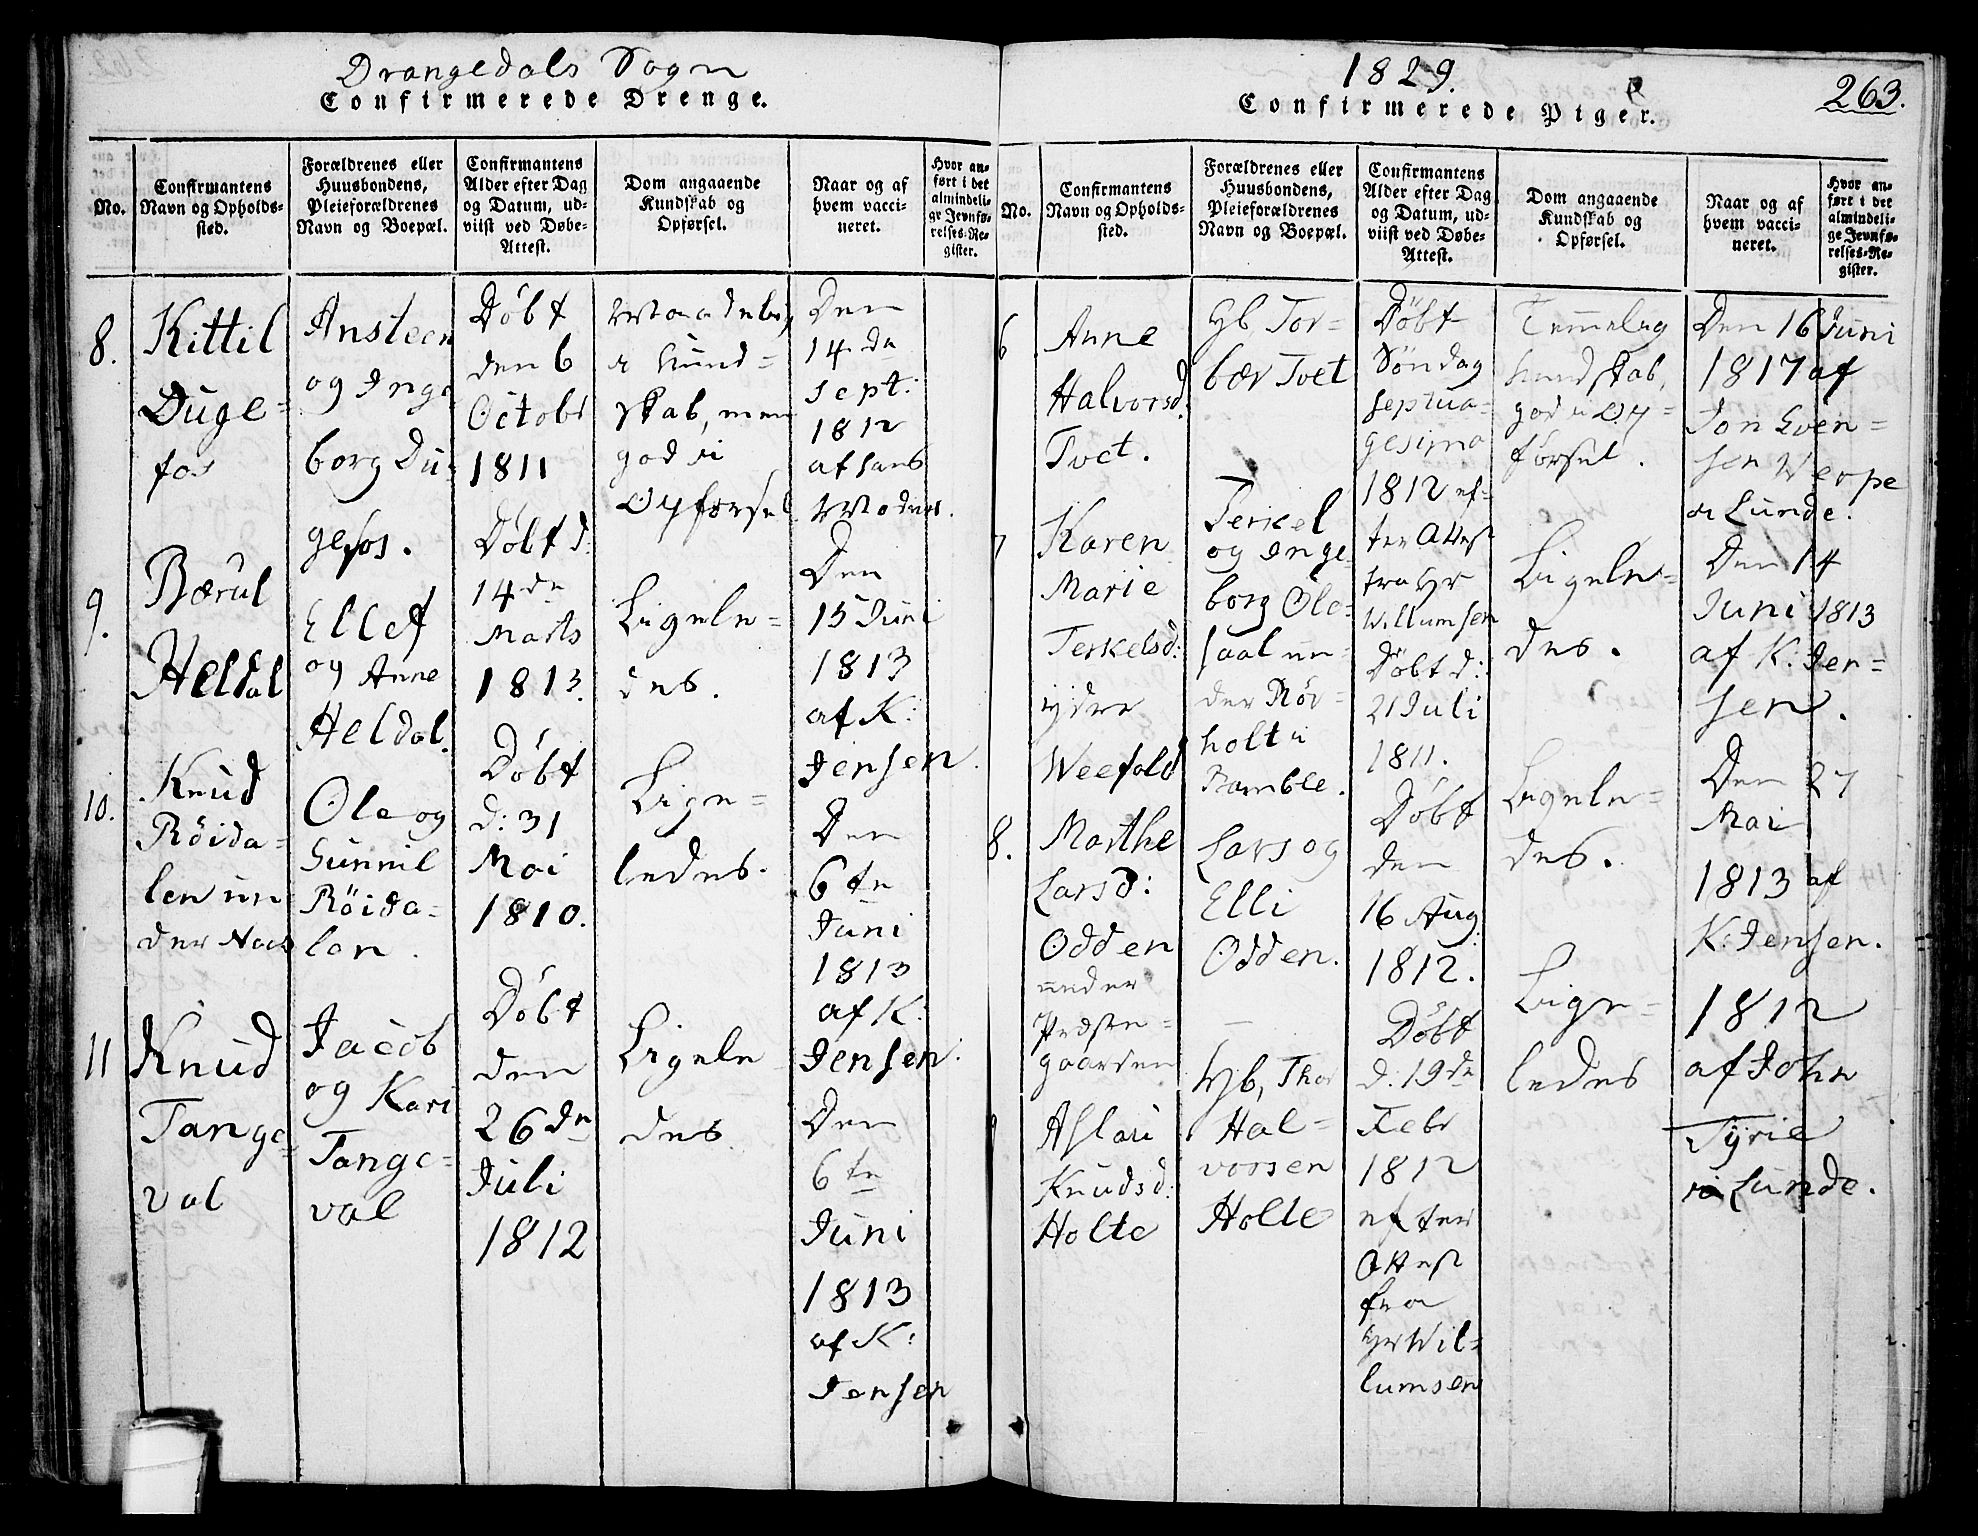 Drangedals Sogn
Confirmerede Drenge.
No.
Confirmantens
Navn og Opholds-
sted.
Forældrenes eller
Huusbondens,
Pleieforældrenes
Navn og Boepæl.
Confirmantens
Alder efter Dag
og Datum, ud-
viist ved Døbe-
Attest.
Dom angaaende
Kundskab og
Opførsel.
Naar og af
hvem vacci-
neret.
Hvor an-
ført i det
almindeli-
ge Jevnfø-
relses-Re-
gister.
8.
Kittil
Duge-
fos
Ansteen
og Inge
borg Du-
gefos.
Döbt
den 6
Octobr
1811
Maadelig
Kund-
skab, men
god i
Opförsel
Den
14 de
Sept:
1812
af hans
Moder.
9.
Bærul
Heldal
Ellef
og Anne
Heldal.
Döbt d:
14 de
Marts
1813.
Ligele-
des.
Den
15 Juni
1813
af K:
Jensen.
10.
Knud
Röida-
len un
der Naes
Ole og
Gunnil
Röida-
len.
Döbt
d: 31
Mai
1810.
Lige-
ledes.
Den
6 te
Juni
1813
af K:
Jensen.
11
Knud
Tange-
val
Jacob
og Kari
Tange-
val
Döbt
den
26 de
Juli
1812
Ligele
des
Den
6 te
Juni
1813
af K:
Jensen
1829.
263.
Confirmerede Piger.
No.
Confirmantens
Navn og Opholds-
sted.
Forældrenes eller
Huusbondens,
Pleieforældrenes
Navn og Boepæl.
Confirmantens
Alder efter Dag
og Datum, ud-
viist ved Døbe-
Attest.
Dom angaaende
Kundskab og
Opførsel.
Naar og af
hvem vacci-
neret.
Hvor an-
ført i det
almindeli-
ge Jevnfø-
relses-Re-
gister.
6
Anne
Halvorsd:
Tvet.
Hb Tor-
bær Tvet
Döbt
Söndag
Septua-
gesima
1812 ef-
ter Attest
fra Hr
Willumsen
Temmelig
Kundskab,
god Op-
försel.
Den 16 Juni
1817 af
Jon Even-
sen Verpe
i Lunde.
7
Karen
Marie
Terkelsd:
ydre
Weefald
Terkel
og Inge
borg Ole-
saal un-
der Rör-
holt i
Bamble.
Döbt d:
21 Juli
1811.
Ligele-
des.
Den 14
Juni 1813
af K. Jen-
sen.
8.
Marthe
Larsd:
Odden
under
Præste-
gaarden
Lars og
Elli
Odden.
Döbt
den
16 Aug
1812.
Ligele-
des.
Den 27
Mai
1813 af
K: Jensen.
Aslau
Knudsd:
Holte
Hb, Thor
Hal-
vorsen
Holte
Döbt
d: 19 de
Febr
1812
efter
Attest
fra
Hr Wil-
lumsen
Lige-
ledes
1812
af John
Tyrie
i Lunde.